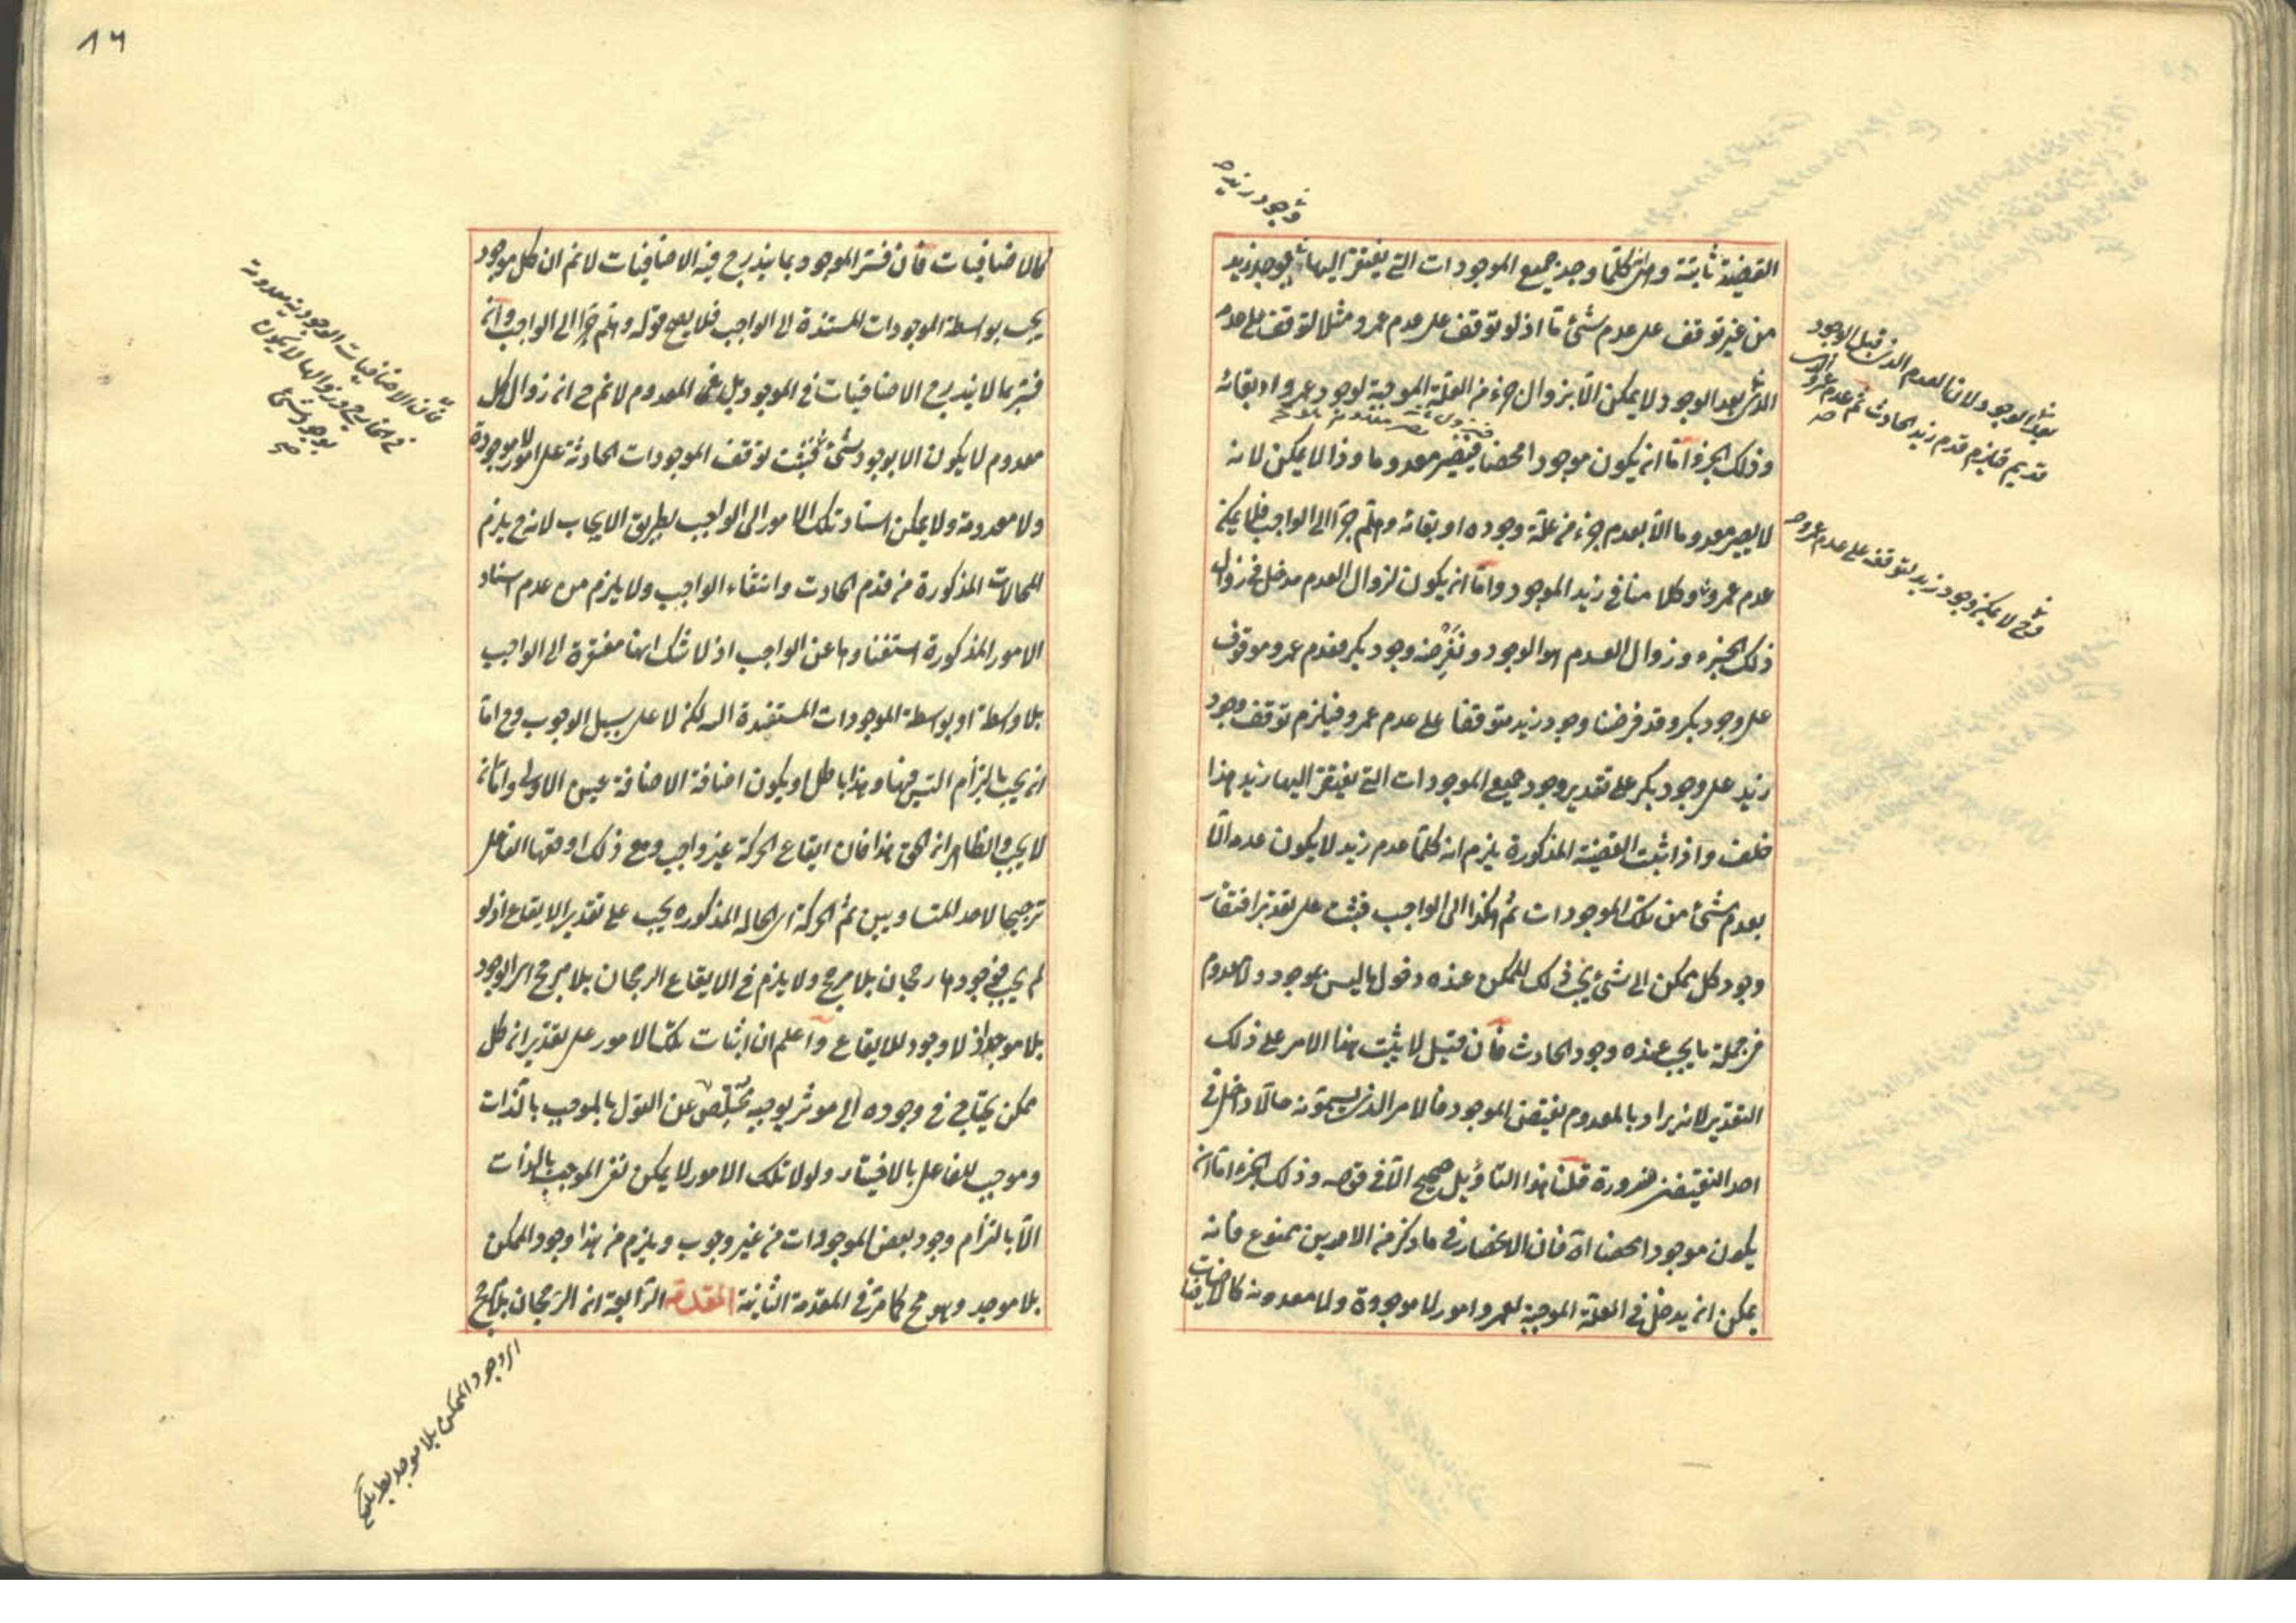 وجود زيد صح
القضية ثابتة وهى كلما وجد جميع الموجودات التى يفتقر اليها يوجد زيد
من غير توقف على عدم شئ ما اذ لو توقف على عدم عمرو مثلا لتوقف على عدمه
الذى بعد الوجود لا يمكن الا بزوال جزء من العلة الموجبة لوجود عمرو او بقائه
وذلك الجزء اما ان يكون موجودا محضا فيصير معدوما وذا لا يمكن لانه
لا يصير معدوما الا بعدم جزء من علة وجوده او بقائه وهلم جرا الى الواجب فلا يمكن
عدم عمرو وكلامنا فى زيد الموجود واما ان يكون لزوال العدم مدخل فى زوال
ذلك الجزء وزوال العدم هو الوجود ونفرضه وجود بكر فعدم عمرو موقوف
على وجود بكر وقد فرضنا وجود زيد متوقفا على عدم عمرو فيلزم توقف وجود
زيد على وجود بكر على تقدير وجود جميع الموجودات التى يفتقر اليها زيد هذا
خلف واذا ثبت القضية المذكورة يلزم انه كلما عدم زيد لا يكون عدمه الا
بعدم شئ من تلك الموجودات ثم هكذا الى الواجب فثبت على تقدير افتقار
وجود كل ممكن الى شئ يجب ذلك الممكن عنده دخول ما ليس بموجود ولا معدوم
فى جملة ما يجب عنده وجود الحادث فان قيل لا يثبت هذا الامر على ذلك
التقدير لانه يراد بالمعدوم نقيض الموجود فالامر الذى يسمونه حالا داخل فى
احد النقيضين ضرورة قلنا هذا التأويل صحيح الا فى قوله وذلك الجزء اما ان
يكون موجودا محضا اه فان الانحصار فى ما ذكر من الامرين ممنوع فانه
يمكن ان يدخل فى العلة الموجبة لعمرو امور لا موجودة ولا معدومة كالاضافيات
بعد الوجود لان العدم الذى قبل الوجود
قديم فيلزم قدم زيد الحادث ثم عدم عمرو الذى
صح
وح لا يمكن وجود زيد لتوقفه على عدم عمرو صح
١٦
كالاضافيات فان فسر الموجود بما يندرج فيه الاضافيات لا نم ان كل موجود
يجب بواسطة الموجودات المستندة الى الواجب فلا يصح قوله وهلم جرا الى الواجب وان
فسر بما لا يندرج الاضافيات فى الموجود بل فى المعدوم لا نم ح ان زوال كل
معدوم لا يكون الا بوجود شئ فثبت توقف الموجودات الحادثة على امور لا موجودة
ولا معدومة ولا يمكن استناد تلك الامور الى الواجب بطريق الايجاب لانه ح يلزم
المحالات المذكورة من قدم الحادث وانتفاء الواجب ولا يلزم من عدم استناد
الامور المذكورة استغناؤها عن الواجب اذ لا شك انها مفتقرة الى الواجب
بلا واسطة او بواسطة الموجودات المستندة اليه لكن لا على سبيل الوجوب وح اما
ان يجب بالتزام التس فيها وهذا باطل او يكون اضافة الاضافة عين الاولى واما ان
لا يجب والظاهر ان الحق هذا فان ايقاع الحركة غير واجب ومع ذلك اوقعها الفاعل
ترجيحا لاحد المتساويين ثم الحركة اى الحالة المذكورة يجب على تقدير الايقاع اذ لو
لم يجب فوجودها رجحان بلا مرجح ولا يلزم فى الايقاع الرجحان بلا مرجح اى الوجود
بلا موجد اذ لا وجود للايقاع واعلم ان اثبات تلك الامور على تقدير ان كل
ممكن يحتاج فى وجوده الى موثر يوجبه تخلص عن القول بالموجب بالذات
وموجب للفاعل بالاختيار ولولا تلك الامور لا يمكن نفى الموجب بالذات
الا بالتزام وجود بعض الموجودات من غير وجوب ويلزم من هذا وجود الممكن
بلا موجد وهو مح كما مر فى المقدمة الثانية المقدمة الرابعة ان الرجحان بلا مرجح
فان الاضافيات الوجودية معدومة
فى الخارج وزوالها لا يكون
بوجود شئ
صح
اى وجود الممكن بلا موجد بط